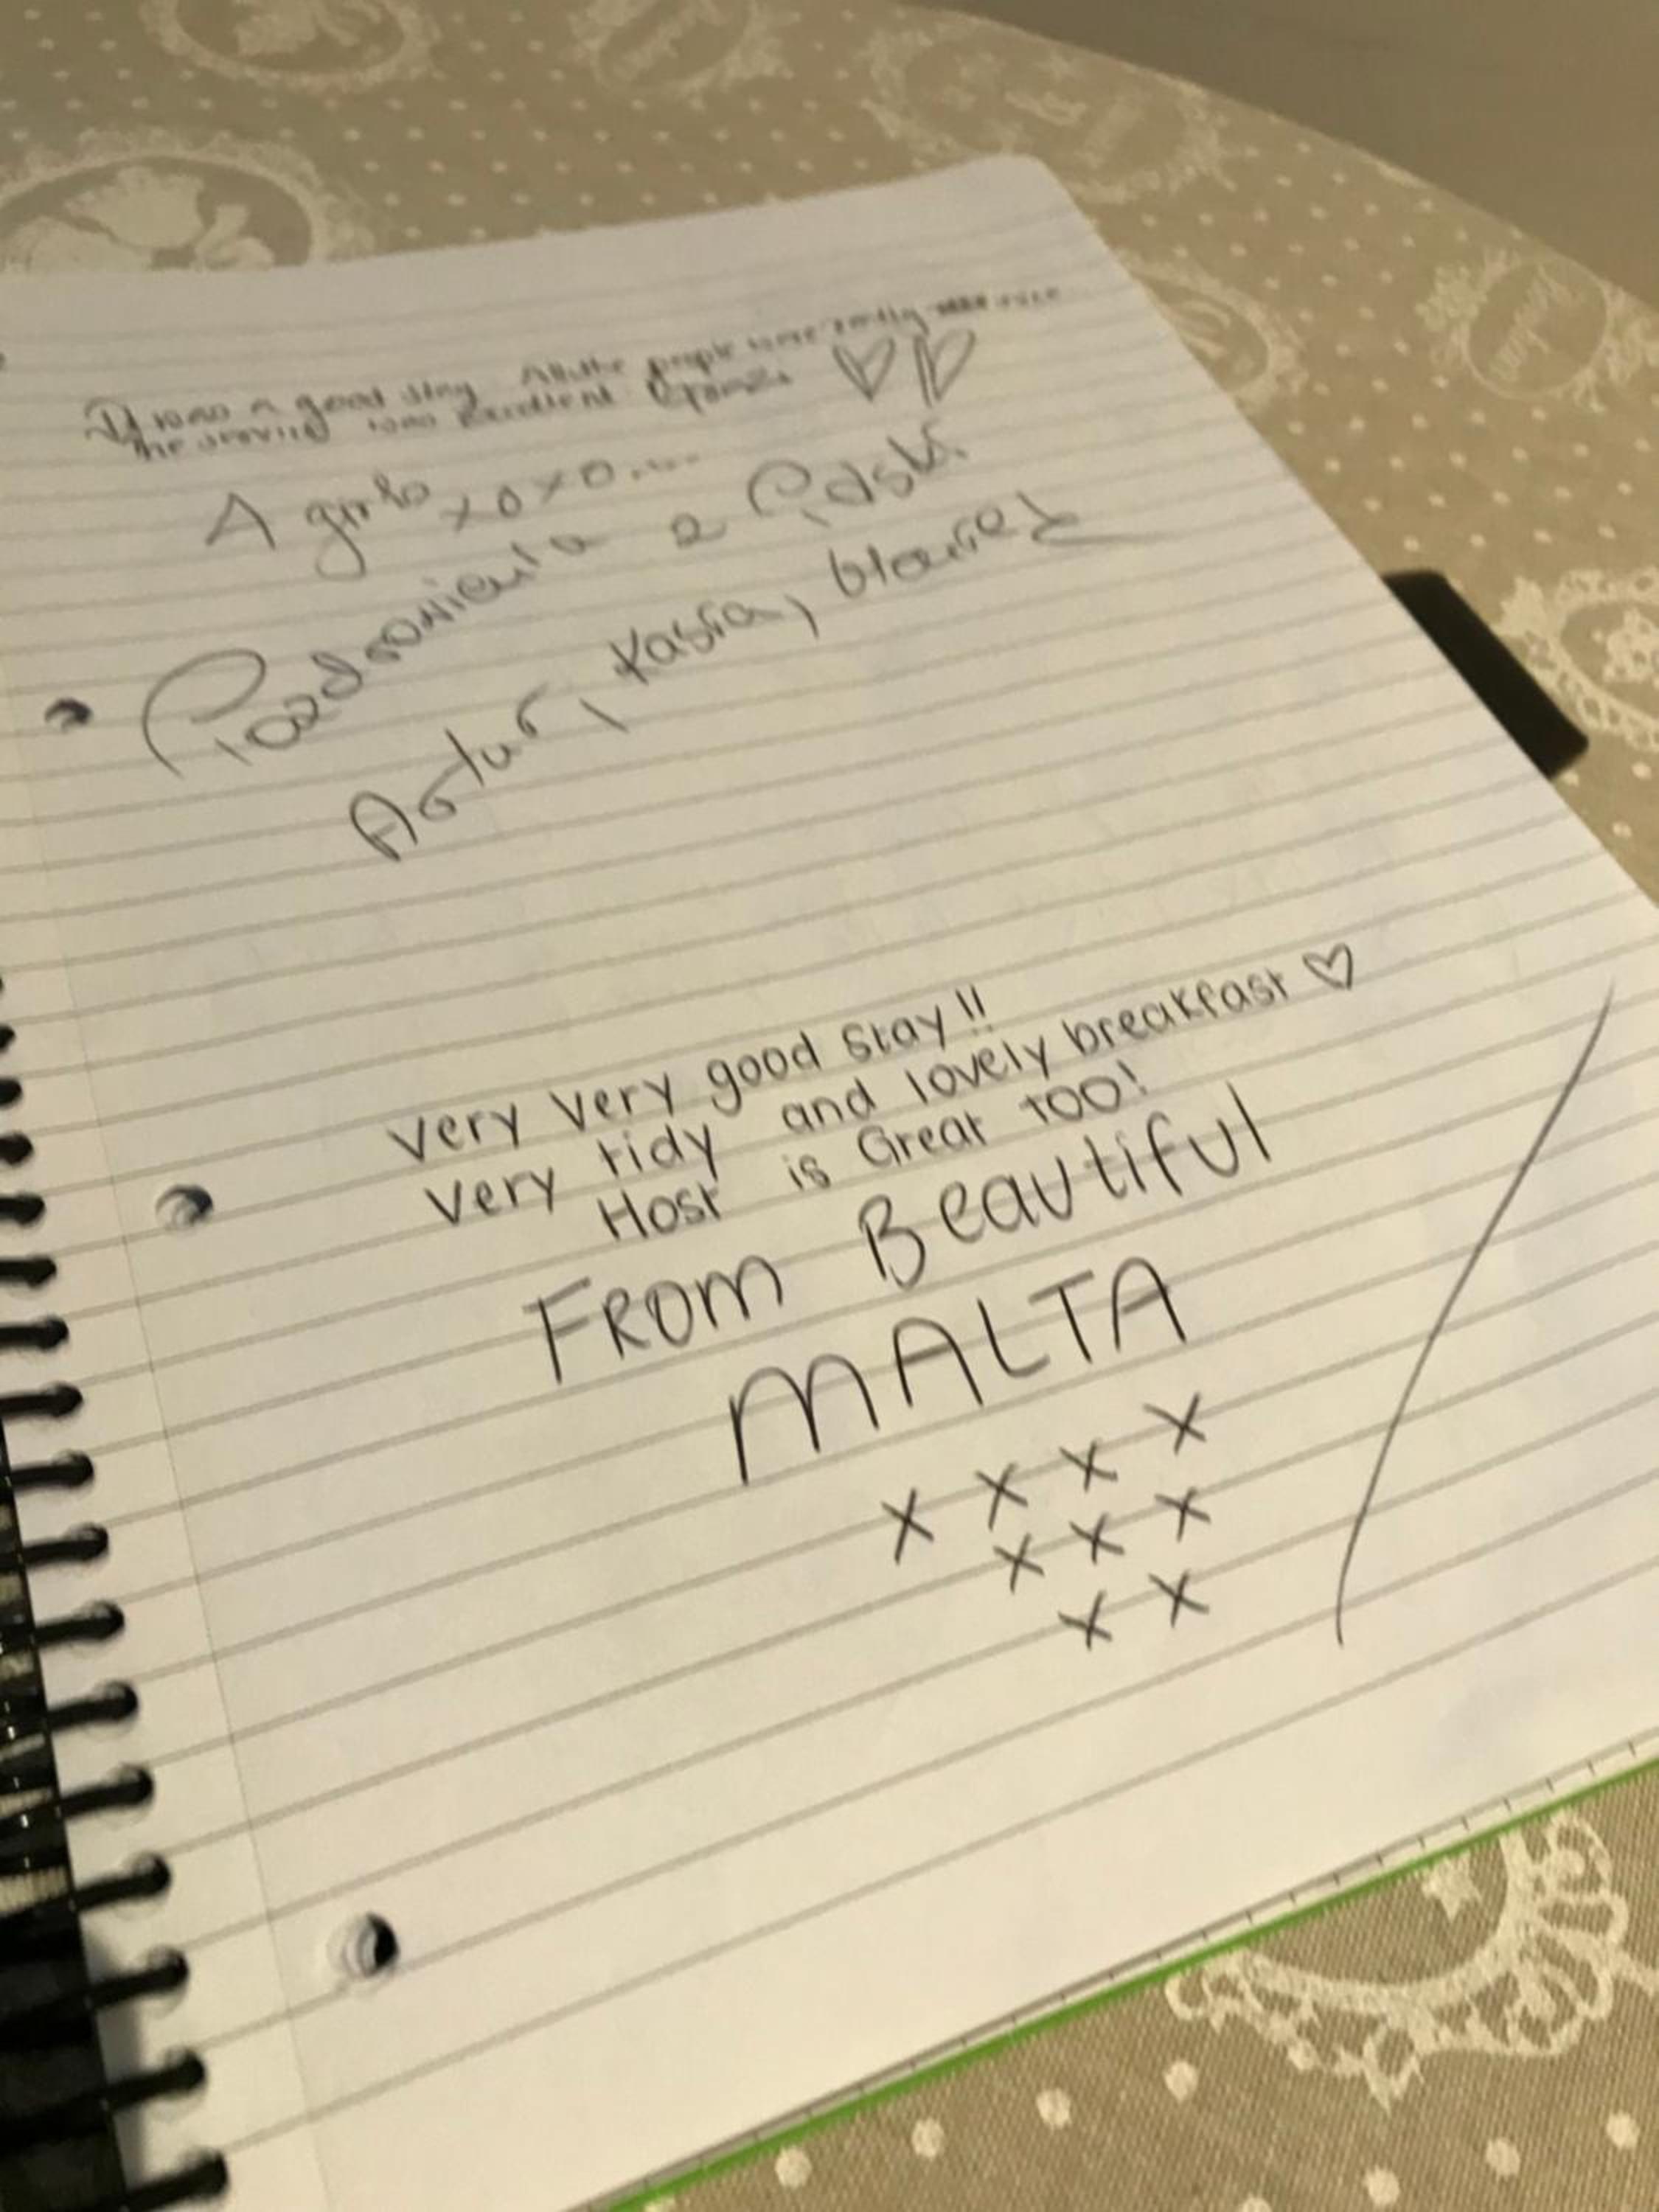 It was a good stay. All the people were really nice
the service was excellent
A girls xoxo....
Pozdrowienia z Polski
Artur, Kasia,
very very good stay!!
very tidy and lovely breakfast ♡
Host is Great too!
FROM Beautiful
MALTA
X X X X
X X X
X X